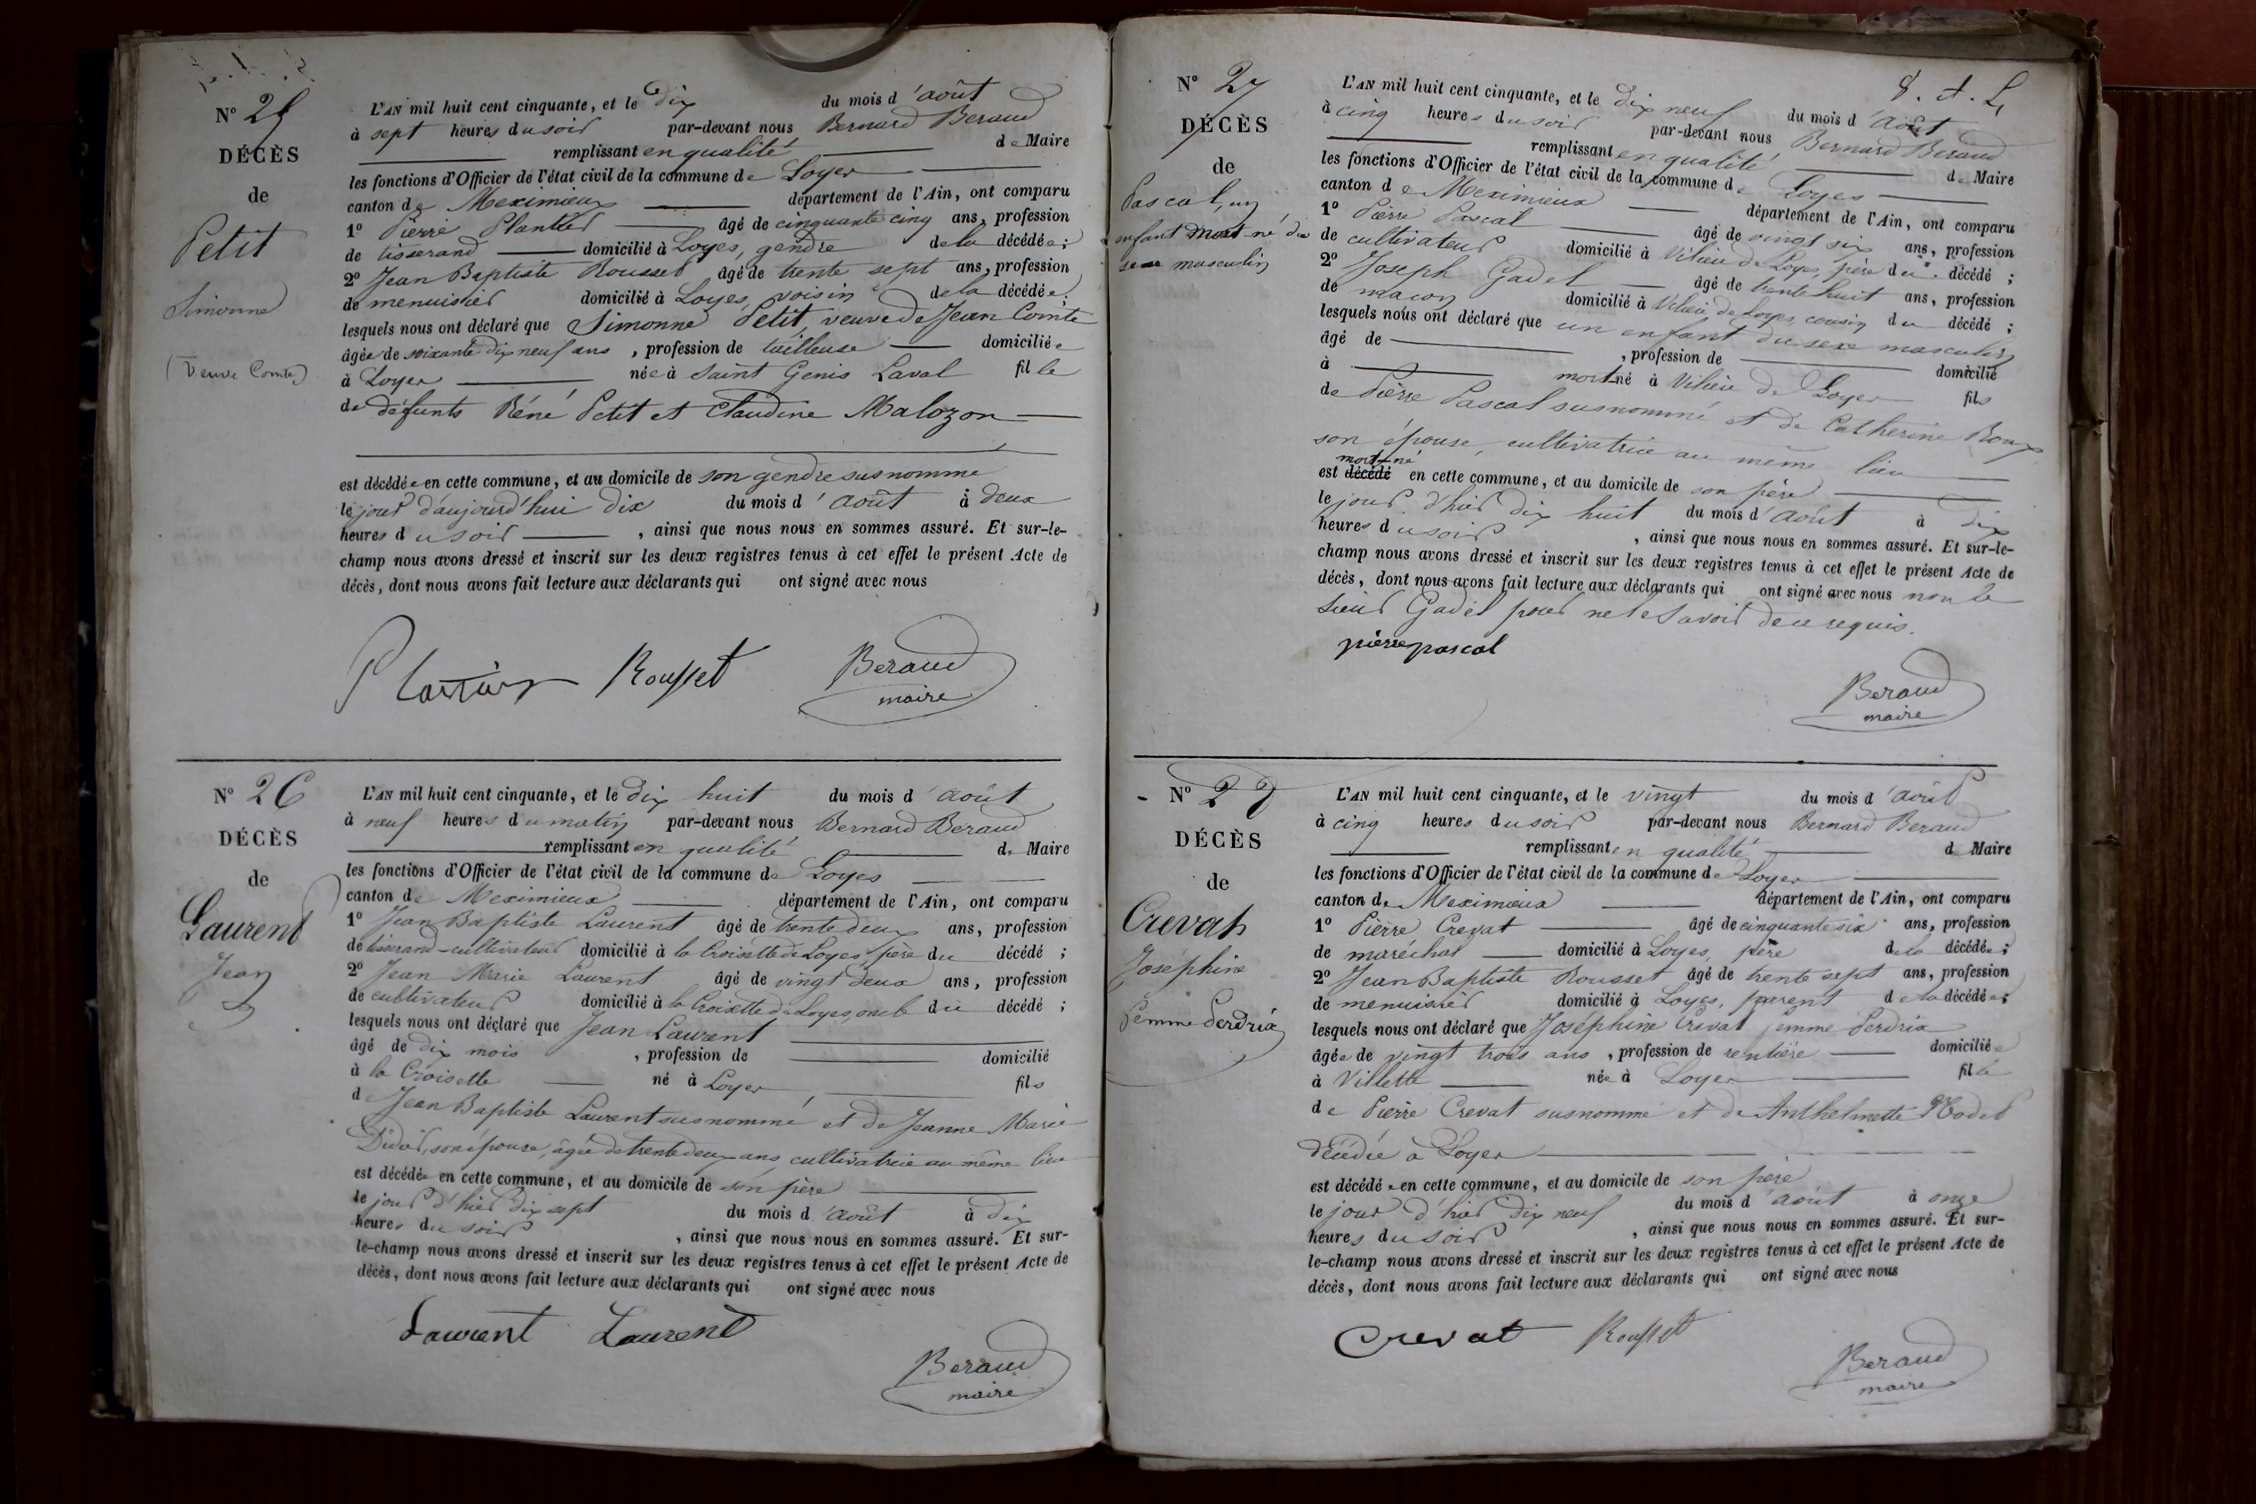 N° 25
DÉCÈS
de
Petit
Simonne
(Veuve Comte)
L'AN mil huit cent cinquante, et le dix du mois d'août
à sept heures du soir par-devant nous Bernard Beraud
remplissant en qualité de Maire
les fonctions d'Officier de l'état civil de la commune de Loyes
canton de Meximieux département de l'Ain, ont comparu
1° Pierre Plantier âgé de cinquante cinq ans, profession
de tisserand domicilié à Loyes, gendre de la décédée;
2° Jean Baptiste Rousset âgé de trente sept ans, profession
de menuisier domicilié à Loyes, voisin de la décédée;
lesquels nous ont déclaré que Simonne Petit, veuve de Jean Comte
âgée de soixante dix neuf ans, profession de tailleuse domiciliée
à Loyes née à Saint Genis Laval fille
de défunts Réné Petit et Claudine Malozon
est décédée en cette commune, et au domicile de son gendre susnommé
le jour d'aujourd'hui dix du mois d'août à deux
heures du soir, ainsi que nous nous en sommes assuré. Et sur-le-
champ nous avons dressé et inscrit sur les deux registres tenus à cet effet le présent Acte de
décès, dont nous avons fait lecture aux déclarants qui ont signé avec nous
Plantier Rousset Beraud
maire
N° 26
DÉCÈS
de
Laurent
Jean
L'AN mil huit cent cinquante, et le dix huit du mois d'août
à neuf heures du matin par-devant nous Bernard Beraud
remplissant en qualité de Maire
les fonctions d'Officier de l'état civil de la commune de Loyes
canton de Meximieux département de l'Ain, ont comparu
1° Jean Baptiste Laurent âgé de trente deux ans, profession
de tisserand-cultivateur domicilié à la Croisette de Loyes, père du décédé;
2° Jean Marie Laurent âgé de vingt deux ans, profession
de cultivateur domicilié à la Croisette de Loyes, oncle du décédé;
lesquels nous ont déclaré que Jean Laurent
âgé de dix mois, profession de domicilié
à la Croisette né à Loyes, fils
de Jean Baptiste Laurent susnommé et de Jeanne Marie
son épouse, âgée de trente deux ans, cultivatrice au même lieu
est décédé en cette commune, et au domicile de son père
le jour d'hier dix sept du mois d'août à dix
heures du soir, ainsi que nous nous en sommes assuré. Et sur-
le-champ nous avons dressé et inscrit sur les deux registres tenus à cet effet le présent Acte de
décès, dont nous avons fait lecture aux déclarants qui ont signé avec nous
Laurent Laurent
Beraud
maire
N° 27
DÉCÈS
de
Pascal, un
enfant mort-né du
sexe masculin
L'AN mil huit cent cinquante, et le dix neuf du mois d'août
à cinq heures du soir par-devant nous Bernard Beraud
remplissant en qualité de Maire
les fonctions d'Officier de l'état civil de la commune de Loyes
canton de Meximieux département de l'Ain, ont comparu
1° Pierre Pascal âgé de vingt six ans, profession
de cultivateur domicilié à Vilieu de Loyes, père du décédé;
2° Joseph Gadel âgé de trente huit ans, profession
de maçon domicilié à Vilieu de Loyes, cousin du décédé;
lesquels nous ont déclaré que un enfant du sexe masculin
âgé de, profession de domicilié
à mort né à Vilieu de Loyes fils
de Pierre Pascal susnommé et de Catherine Roux
son épouse, cultivatrice au même lieu
mort-né
est décédé en cette commune, et au domicile de son père
le jour d'hier dix huit du mois d'août à dix
heures du soir, ainsi que nous nous en sommes assuré. Et sur-le-
champ nous avons dressé et inscrit sur les deux registres tenus à cet effet le présent Acte de
décès, dont nous avons fait lecture aux déclarants qui ont signé avec nous non le
sieur Gadel pour ne le savoir de ce requis.
pierre pascal
Beraud
maire
N° 28
DÉCÈS
de
Crevat
Joséphine
femme Perdrix
L'AN mil huit cent cinquante, et le vingt du mois d'août
à cinq heures du soir par-devant nous Bernard Beraud
remplissant en qualité de Maire
les fonctions d'Officier de l'état civil de la commune de Loyes
canton de Meximieux département de l'Ain, ont comparu
1° Pierre Crevat âgé de cinquante six ans, profession
de maréchal domicilié à Loyes, père de la décédée;
2° Jean Baptiste Rousset âgé de trente sept ans, profession
de menuisier domicilié à Loyes, parent de la décédée;
lesquels nous ont déclaré que Joséphine Crevat femme Perdrix
âgée de vingt trois ans, profession de rentière domiciliée
à Villette née à Loyes fille
de Pierre Crevat susnommé et de Anthelmette
décédée à Loyes
est décédée en cette commune, et au domicile de son père
le jour d'hier dix neuf du mois d'août à onze
heures du soir, ainsi que nous nous en sommes assuré. Et sur-
le-champ nous avons dressé et inscrit sur les deux registres tenus à cet effet le présent Acte de
décès, dont nous avons fait lecture aux déclarants qui ont signé avec nous
Crevat Rousset
Beraud
maire